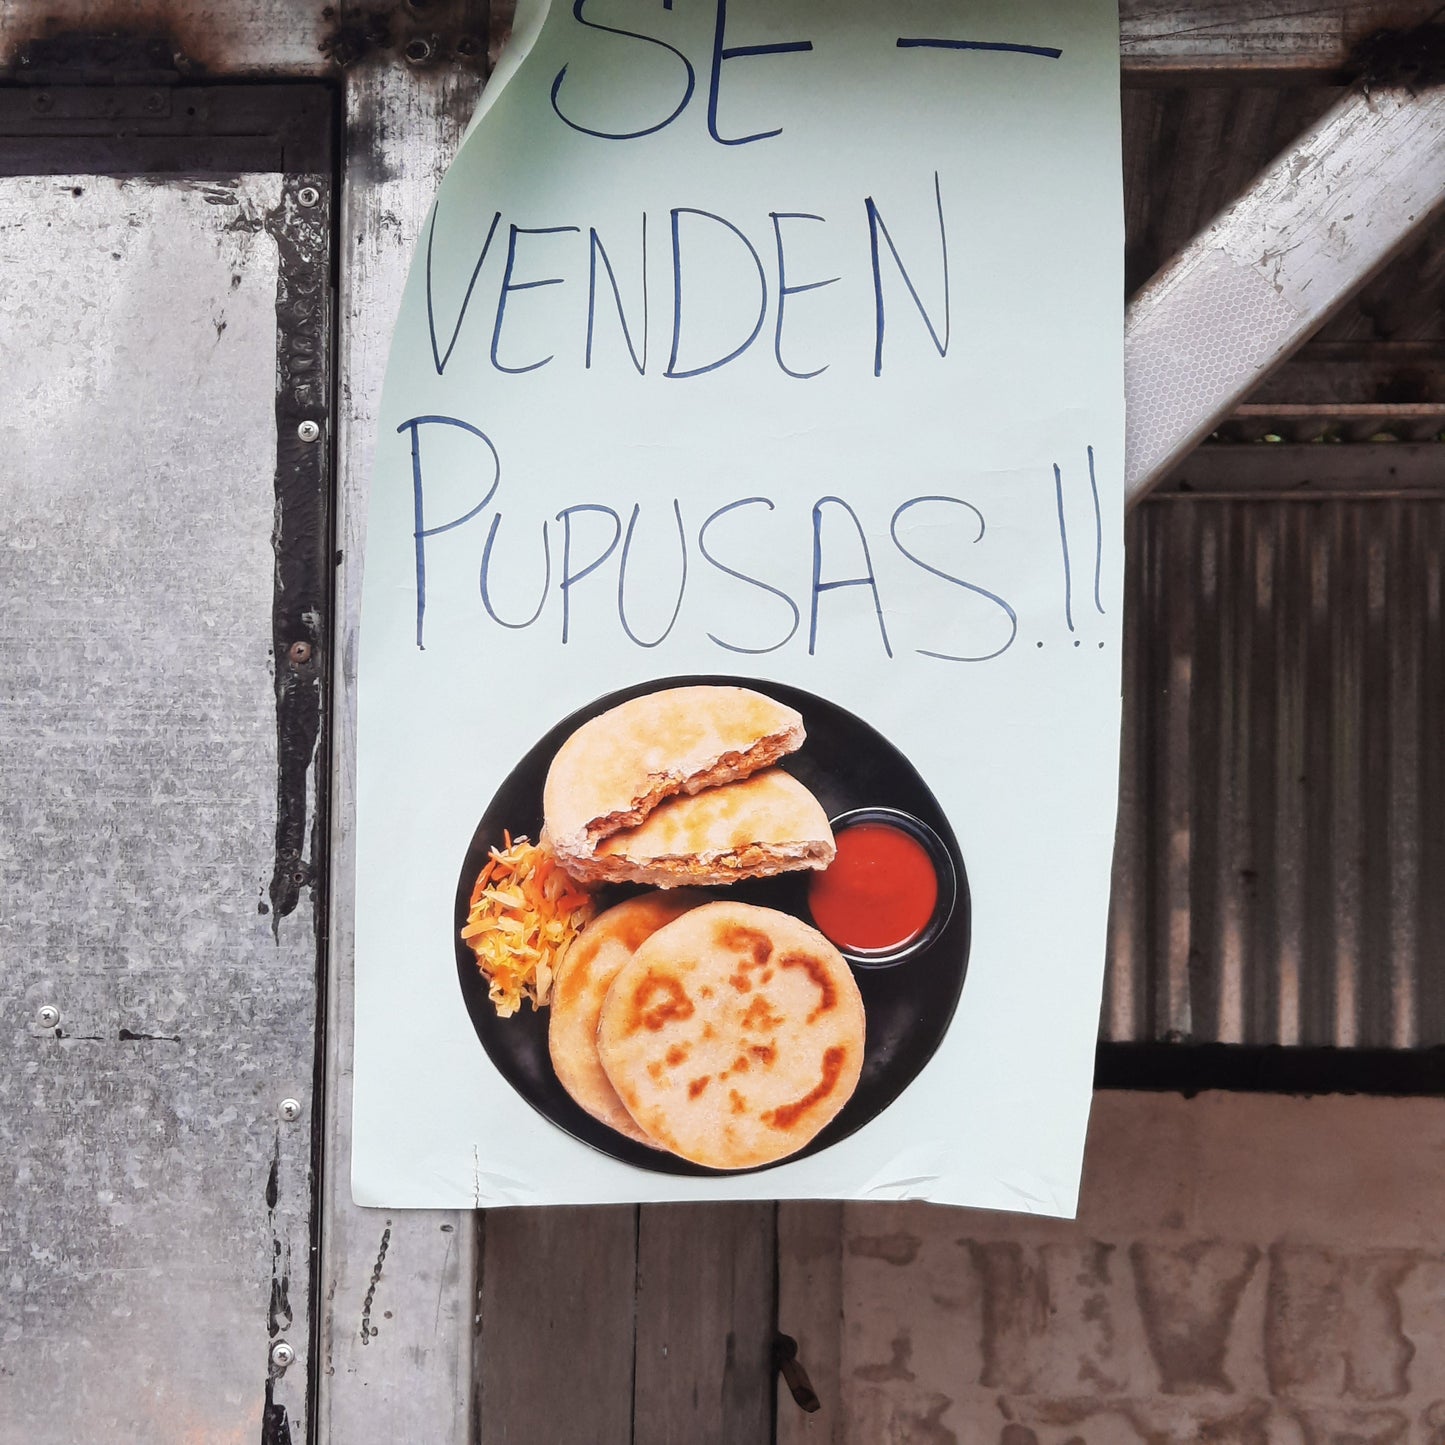 SE —
VENDEN
PUPUSAS.!!